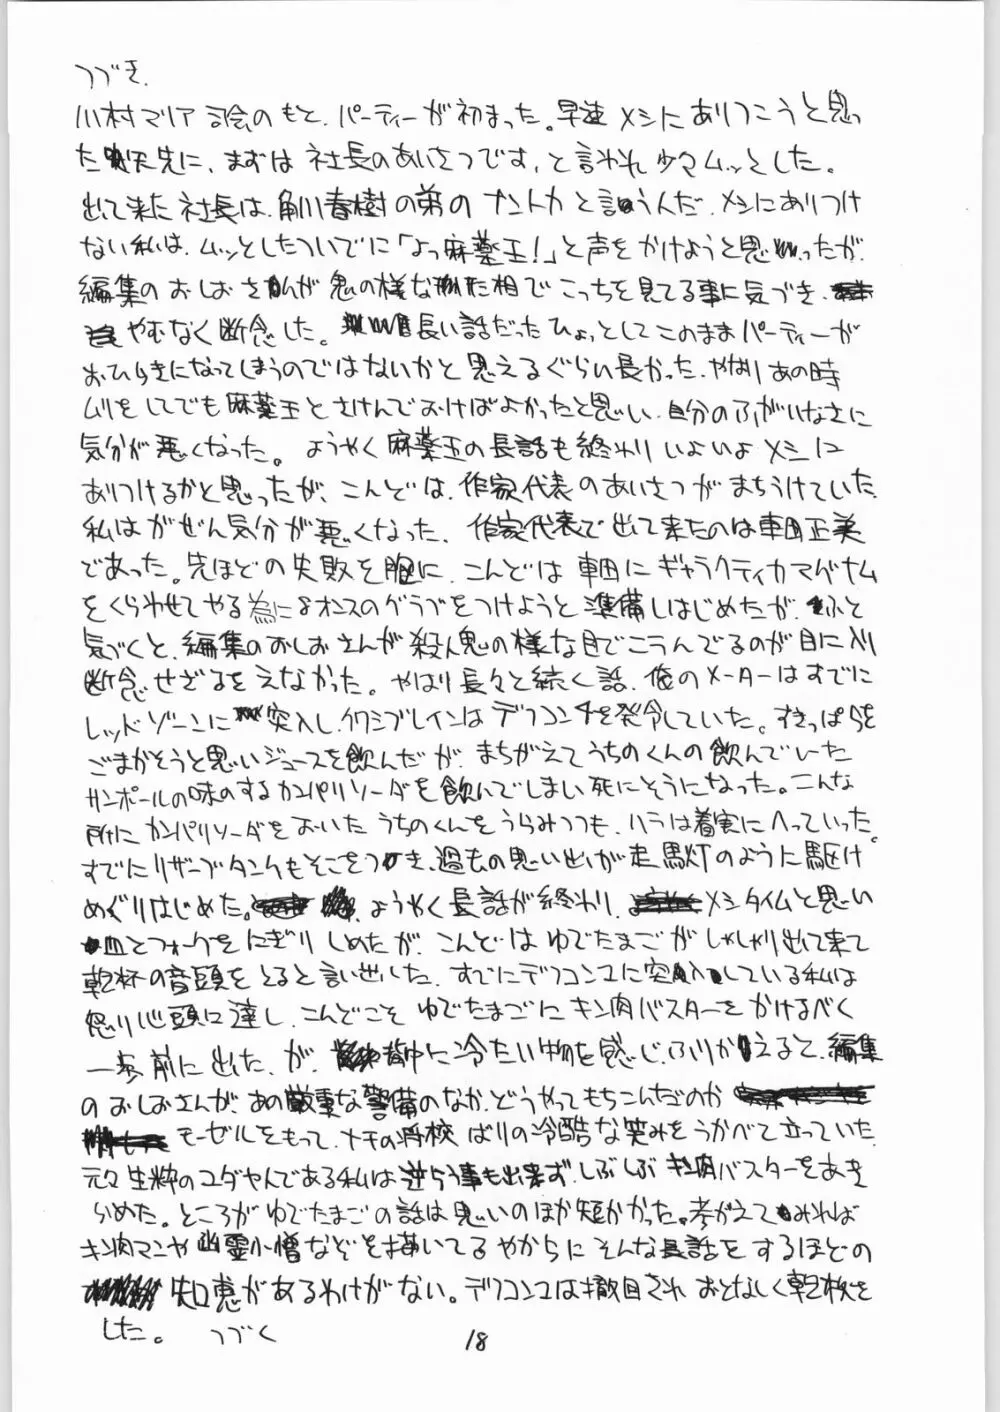 つづき.
川村マリア司会のもと、パーティーが初まった。早速メシにありつこうと思っ
た矢先に、まずは社長のあいさつです、と言われ少々ムッとした。
出て来た社長は、角川春樹の弟のナントカと言うんだ、メシにありつけ
ない私は、ムッとしたついでに「よっ麻薬王!」と声をかけようと思ったが、
編集のおしおさんが鬼の様な形相でこっちを見てる事に気づき、
やむなく断念した。長い話だったひょっとしてこのままパーティーが
おひらきになってしまうのではないかと思えるぐらい長かった、やはりあの時
ムリをしてでも麻薬王とさけんでおけばよかったと思い、自分のふがいなさに
気分が悪くなった。ようやく麻薬王の長話も終わりいよいよメシに
ありつけるかと思ったが、こんどは、作家代表のあいさつがまちうけていた
私はがぜん気分が悪くなった、作家代表で出て来たのは車田正美
であった。先ほどの失敗を胸に、こんどは車田にギャラクティカマグナム
をくらわせてやる為に8オンスのグラブをつけようと準備しはじめたが、ふと
気づくと、編集のおしおさんが殺人鬼の様な目でこうんでるのが目に入り
断念せざるをえなかった。やはり長々と続く話、俺のメーターはすでに
レッドゾーンに突入し、イワシブレインはデフコン4を発令していた。すきっぱらを
ごまかそうと思いジュースを飲んだが、まちがえてうちのくんの飲んでいた
サンポールの味のするカンパリソーダを飲んでしまい死にそうになった。こんな
所にカンパリソーダをおいたうちのくんをうらみつつも、ハラは着実にへっていった。
すでにリザーブタンクもそこをつき、過去の思い出が走馬灯のように駆け
めぐりはじめた。ようやく長話が終わり、メシタイムと思い
皿とフォークをにぎりしめたが、こんどはゆでたまごがしゃしゃり出て来て
乾杯の音頭をとると言い出した、すでにデフコン2に突入している私は
怒り心頭に達し、こんどこそゆでたまごにキン肉バスターをかけるべく
一歩前に出た、が、背中に冷たい物を感じ、ふりかえると、編集
のおしおさんが、あの厳重な警備のなか、どうやってもちこんだのか
モーゼルをもって、ナチの将校ばりの冷酷な笑みをうかべて立っていた
元々生粋のユダヤ人である私は逆らう事も出来ず、しぶしぶキン肉バスターをあき
らめた。ところがゆでたまごの話は思いのほか短かかった。考がえてみれば
キン肉マンや幽霊小僧などを描いてるやからにそんな長話をするほどの
知恵があるわけがない。デフコン2は撤回されおとなしく乾杯を
した。つづく
18